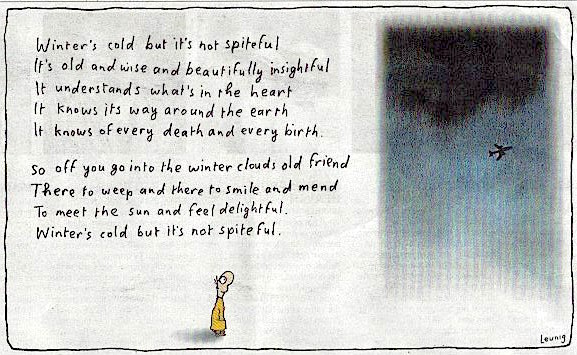 Winter's cold but it's not spiteful
It's old and wise and beautifully insightful
It understands what's in the heart
It knows its way around the earth
It knows of every death and every birth.
So off you go into the winter clouds old friend
There to weep and there to smile and mend
To meet the sun and feel delightful.
Winter's cold but it's not spiteful.
Leunig